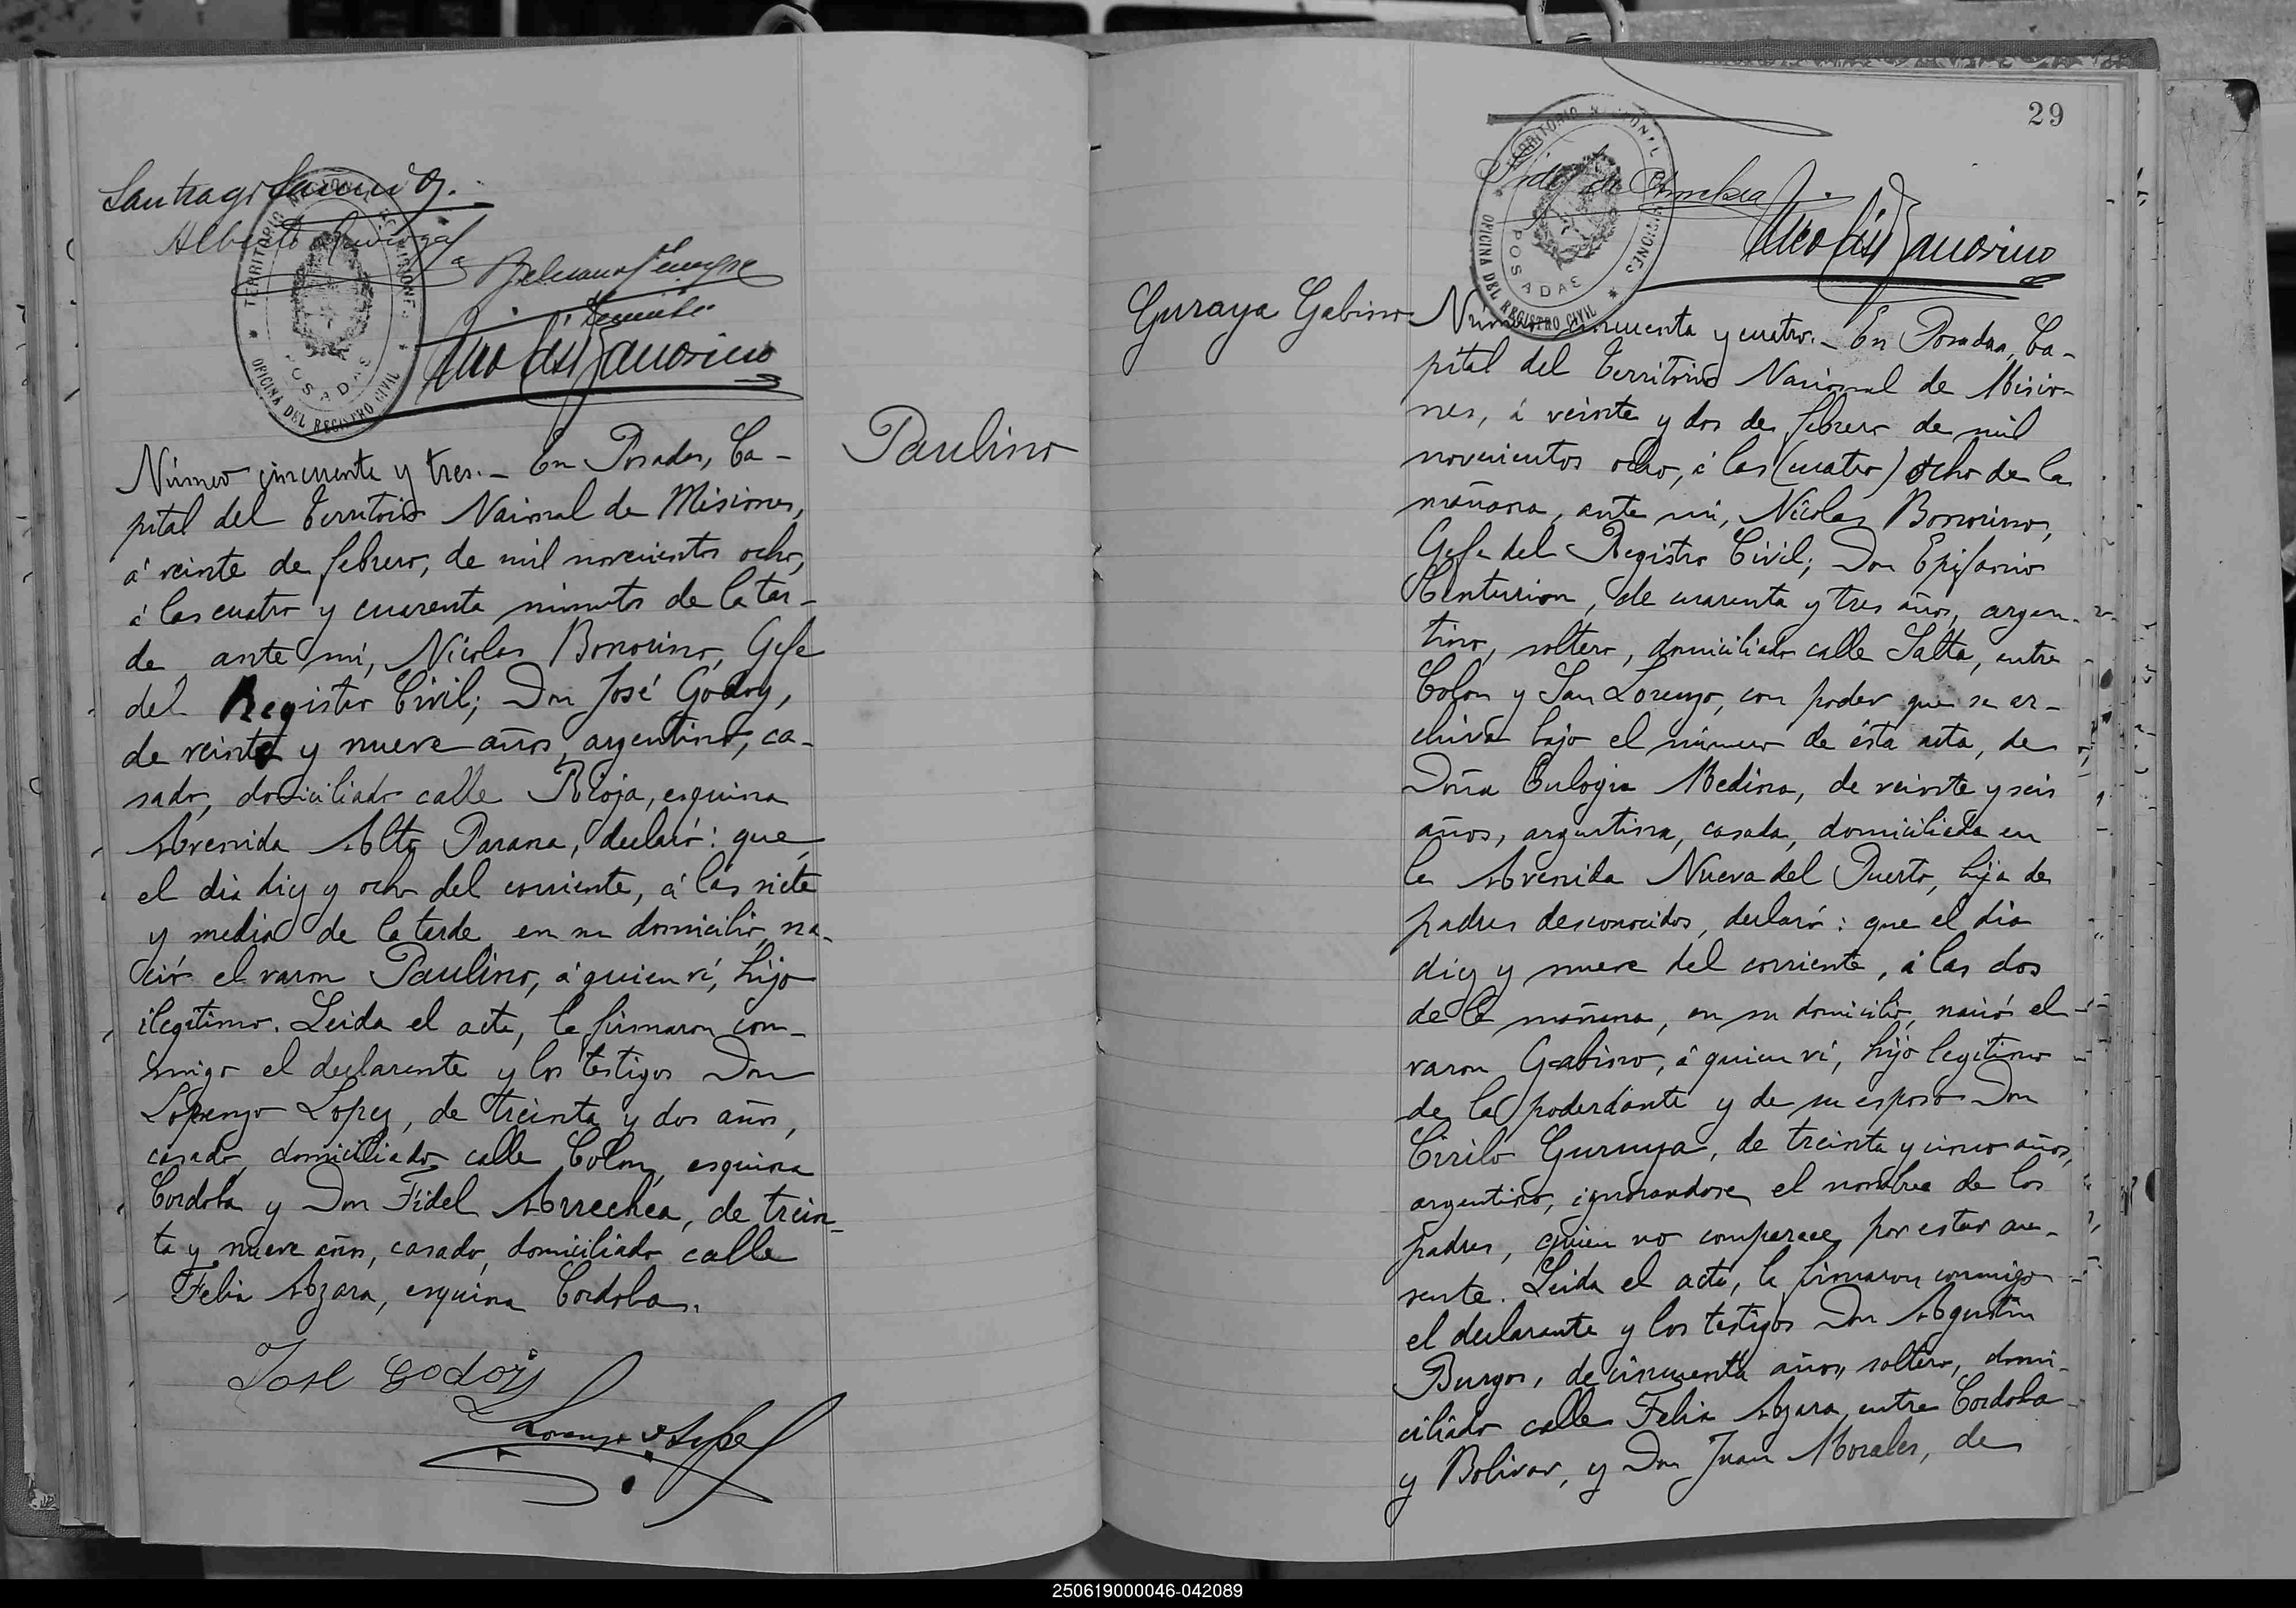 Santiago
Alberto Quiroga
Belisario
Nicolás Bonorino
TERRITORIO NACIONAL DE MISIONES
POSADAS
OFICINA DEL REGISTRO CIVIL
Paulino
Número cincuenta y tres._ En Posadas, Ca-
pital del Territorio Nacional de Misiones,
á veinte de febrero, de mil novecientos ocho,
á las cuatro y cuarenta minutos de la tar-
de ante mí, Nicolas Bonorino, Gefe
del Registro Civil; Don José Godoy,
de veinte y nueve años, argentino, ca-
sado, domiciliado calle Rioja, esquina
Avenida Alto Parana, declaró: que
el dia diez y ocho del corriente, á las siete
y media de la tarde en su domicilio, na-
ció el varon Paulino, á quien ví, hijo
ilegitimo. Leida el acta, la firmaron con-
migo el declarante y los testigos Don
Lorenzo Lopez, de treinta y dos años,
casado, domiciliado calle Colon, esquina
Cordoba y Don Fidel Arrechea, de trein-
ta y nueve años, casado, domiciliado calle
Felix Azara, esquina Cordoba.
José Godoy
Lorenzo Lopez
29
TERRITORIO NACIONAL DE MISIONES
POSADAS
OFICINA DEL REGISTRO CIVIL
Fidel Arrechea
Nicolás Bonorino
Guraya Gabino
Número cincuenta y cuatro._ En Posadas, Ca-
pital del Territorio Nacional de Misio-
nes, á veinte y dos de febrero de mil
novecientos ocho, á las (cuatro) ocho de la
mañana, ante mí, Nicolas Bonorino,
Gefe del Registro Civil; Don Epifanio
Centurion, de cuarenta y tres años, argen-
tino, soltero, domiciliado calle Salta, entre
Colon y San Lorenzo, con poder que se ar-
chiva bajo el número de ésta acta, de
Doña Eulogia Medina, de veinte y seis
años, argentina, casada, domiciliada en
la Avenida Nueva del Puerto, hija de
padres desconocidos, declaró: que el dia
diez y nueve del corriente, á las dos
de la mañana, en su domicilio, nació el
varon Gabino, á quien ví, hijo legitimo
de la poderdante y de su esposo Don
Cirilo Guraya, de treinta y cinco años,
argentino, ignorandose el nombre de los
padres, quien no comparece por estar au-
sente. Leida el acta, la firmaron conmigo
el declarante y los testigos Don Agustin
Burgos, de cincuenta años, soltero, domi-
ciliado calle Felix Azara, entre Cordoba
y Bolivar, y Don Juan Morales, de
250619000046-042089